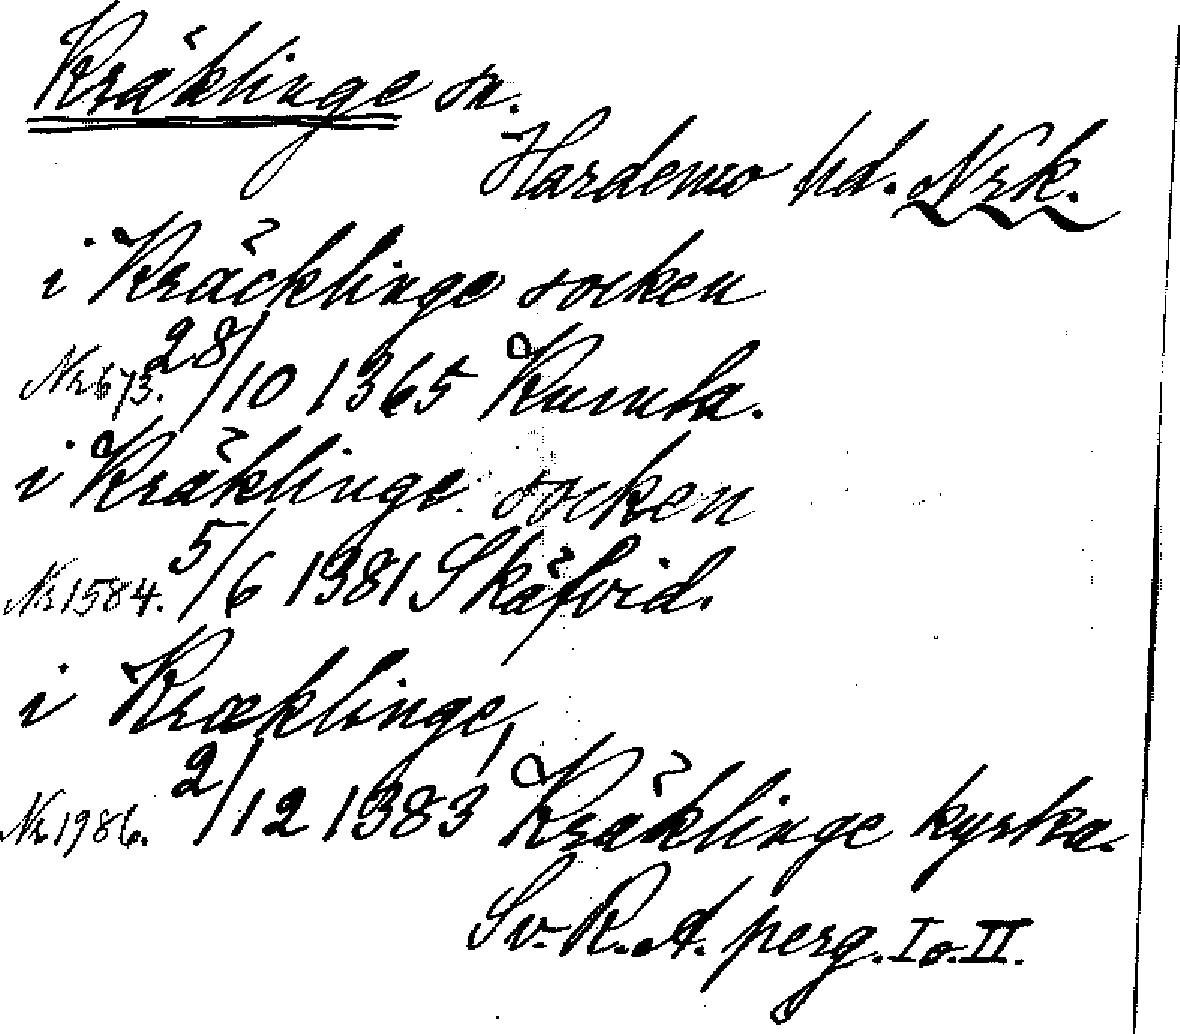 Kräklinge sn.
Hardemo hd. Nrk.
i Kräcklinge socken
Nr 673. 28/10 1365 Kumla.
i Kräklinge socken
Nr 1584. 5/6 1381 Skäfvid.
i Kræklinge,
Nr 1986. 2/12 1383 Kräklinge kyrka.
Sv. R. A. perg. I o. II.